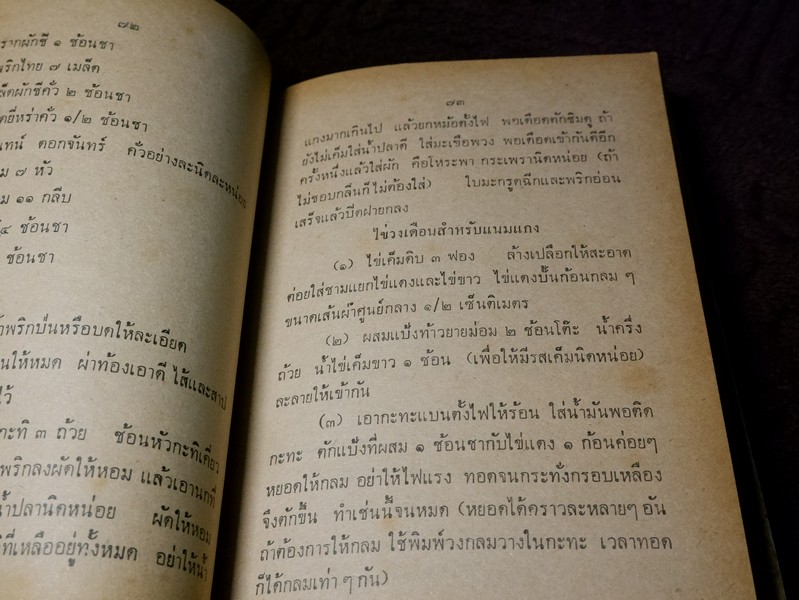 ๗๒
รากผักชี ๑ ช้อนชา
พริกไทย ๗ เมล็ด
ล็ดผักชีคั่ว ๒ ช้อนชา
ดยี่หร่าคั่ว ๑/๒ ช้อนชา
นทน์ ดอกจันทร์ คั่วอย่างละนิดละหน่อย
ม ๗ หัว
ม ๑๑ กลีบ
๔ ช้อนชา
ช้อนชา
ำพริกป่นหรือบดให้ละเอียด
นให้หมด ผ่าท้องเอาดี ไส้และสาป
ไว้
กะทิ ๓ ถ้วย ช้อนหัวกะทิเคี่ยว
พริกลงผัดให้หอม แล้วเอานกที่
น้ำปลานิดหน่อย ผัดให้หอม
ที่เหลืออยู่ทั้งหมด อย่าให้น้ำ
๗๓
แกงมากเกินไป แล้วยกหม้อตั้งไฟ พอเดือดตักชิมดู ถ้า
ยังไม่เค็มใส่น้ำปลาดี ใส่มะเขือพวง พอเดือดเข้ากันดีอีก
ครั้งหนึ่งแล้วใส่ผัก คือโหระพา กระเพรานิดหน่อย (ถ้า
ไม่ชอบกลิ่นก็ไม่ต้องใส่) ใบมะกรูดฉีกและพริกอ่อน
เสร็จแล้วปิดฝายกลง
ไข่วงเดือนสำหรับแนมแกง
(๑) ไข่เค็มดิบ ๓ ฟอง ล้างเปลือกให้สะอาด
ค่อยใส่ชามแยกไข่แดงและไข่ขาว ไข่แดงปั้นก้อนกลม ๆ
ขนาดเส้นผ่าศูนย์กลาง ๑/๒ เซ็นติเมตร
(๒) ผสมแป้งท้าวยายม่อม ๒ ช้อนโต๊ะ น้ำครึ่ง
ถ้วย น้ำไข่เค็มขาว ๑ ช้อน (เพื่อให้มีรสเค็มนิดหน่อย)
ละลายให้เข้ากัน
(๓) เอากะทะแบนตั้งไฟให้ร้อน ใส่น้ำมันพอติด
กะทะ ตักแป้งที่ผสม ๑ ช้อนชากับไข่แดง ๑ ก้อนค่อยๆ
หยอดให้กลม อย่าให้ไฟแรง ทอดจนกระทั่งกรอบเหลือง
จึงตักขึ้น ทำเช่นนี้จนหมด (หยอดได้คราวละหลายๆ อัน
ถ้าต้องการให้กลม ใช้พิมพ์วงกลมวางในกะทะ เวลาทอด
ก็ได้กลมเท่า ๆ กัน)